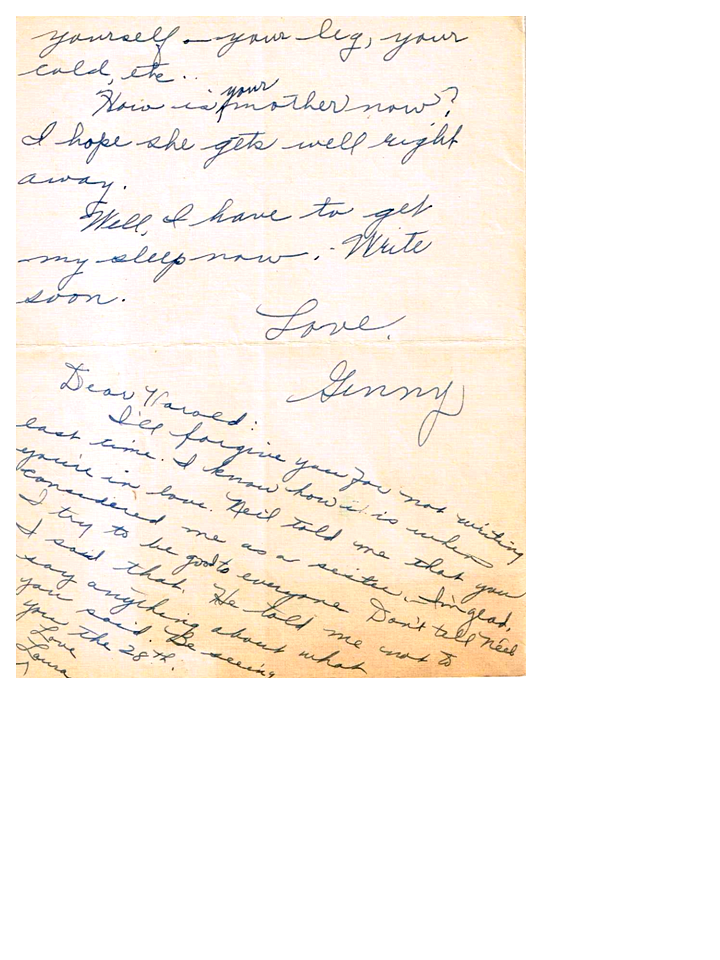 yourself – your leg, your
cold, etc..
How is your mother now?
I hope she gets well right
away.
Well, I have to get
my sleep now. Write
soon.
Love,
Ginny
Dear Harold:
I'll forgive you for not writing
last time. I know how it is when
you're in love. Neil told me that you
considered me as a sister. I'm glad.
I try to be good to everyone. Don't tell Neil
I said that. He told me not to
say anything about what
you said. Be seeing
you the 28th.
Love
Laura